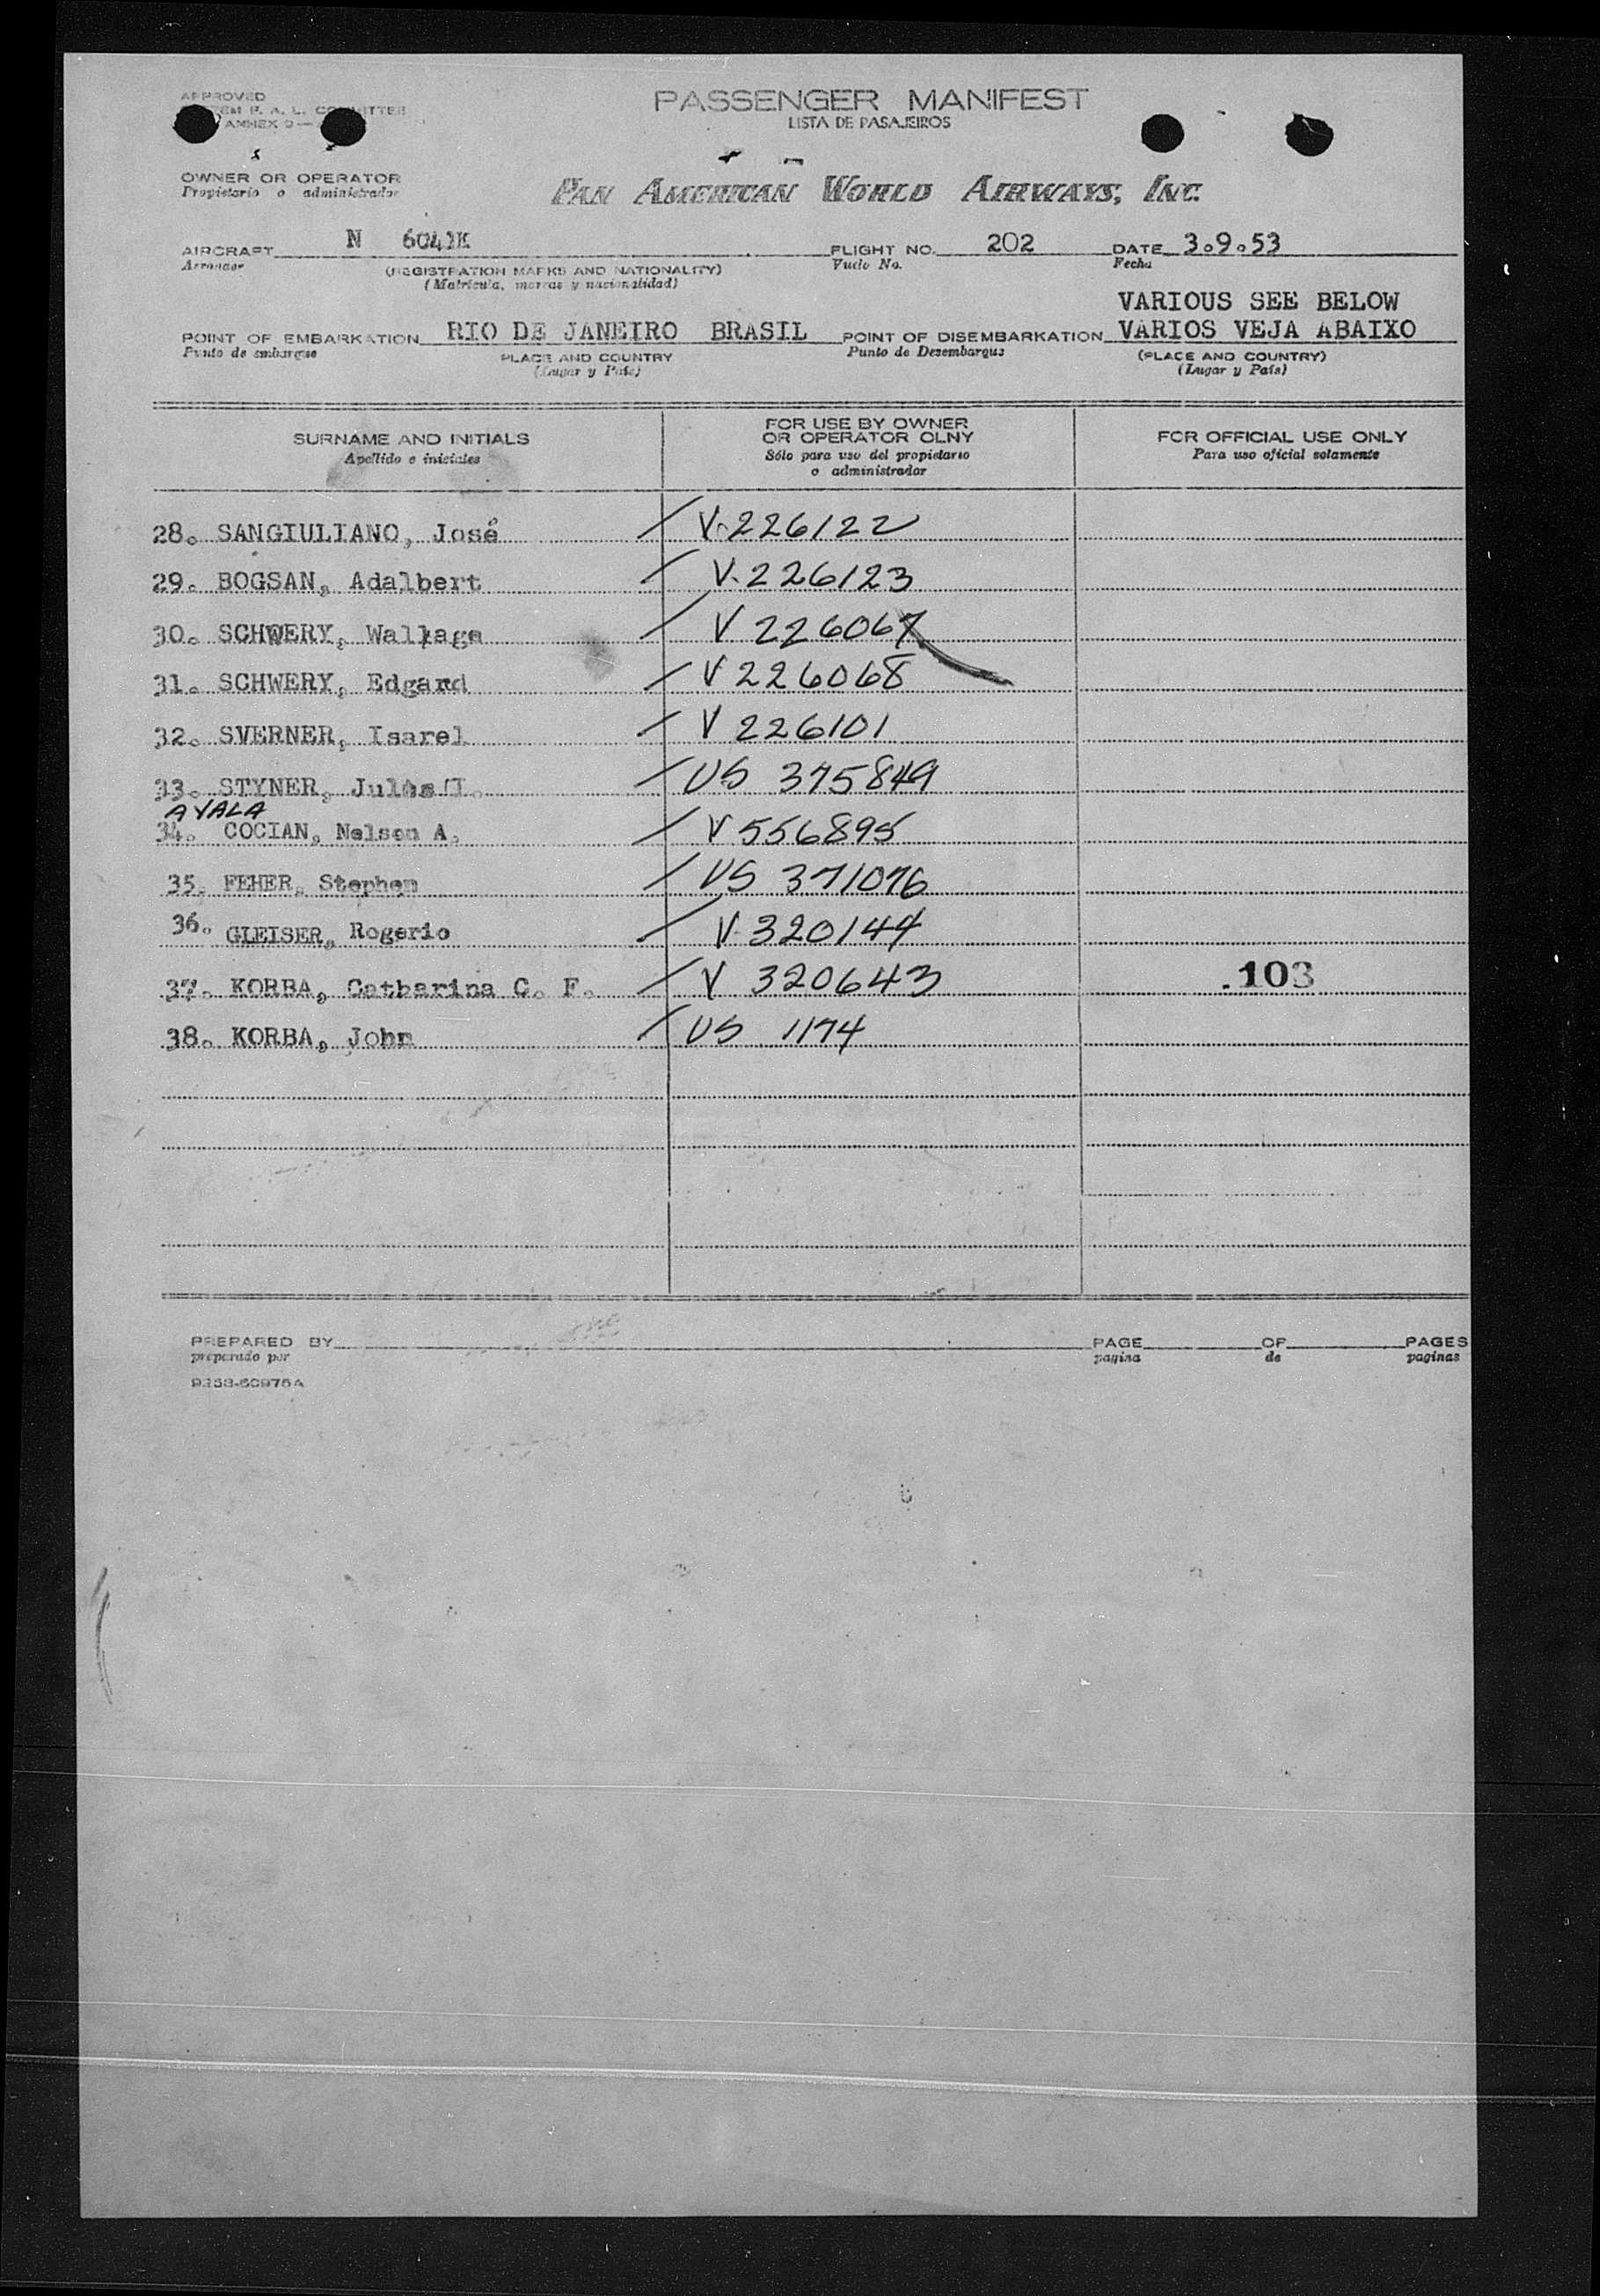 APPROVED
ANNEX 9
PASSENGER MANIFEST
LISTA DE PASAJEIROS
OWNER OR OPERATOR
Propietario o administrador
PAN AMERICAN WORLD AIRWAYS, INC.
AIRCRAFT N 6041K FLIGHT NO. 202 DATE 3.9.53
(REGISTRATION MARKS AND NATIONALITY) Vuelo No. Fecha
(Matrícula, marcas y nacionalidad)
VARIOUS SEE BELOW
POINT OF EMBARKATION RIO DE JANEIRO BRASIL POINT OF DISEMBARKATION VARIOS VEJA ABAIXO
Punto de embarque PLACE AND COUNTRY Punto de Desembarque (PLACE AND COUNTRY)
(Lugar y País) (Lugar y País)
SURNAME AND INITIALS FOR USE BY OWNER OR OPERATOR OLNY FOR OFFICIAL USE ONLY
Apellido e iniciales Sólo para uso del propietario o administrador Para uso oficial solamente
28. SANGIULIANO, José / V-226122
29. BOGSAN, Adalbert / V.226123
30. SCHWERY, / V 226067
31. SCHWERY, Edgard / V 226068
32. SVERNER, Isarel / V 226101
33. STYNER, / US 375849
AYALA
34. COCIAN, Nelson A. / V 556895
35. FEHER, Stephen / US 371076
36. GLEISER, Rogerio / V 320144
37. KORBA, Catharina C. F. / V 320643 .103
38. KORBA, John / US 1174
PREPARED BY PAGE OF PAGES
preparado por pagina de paginas